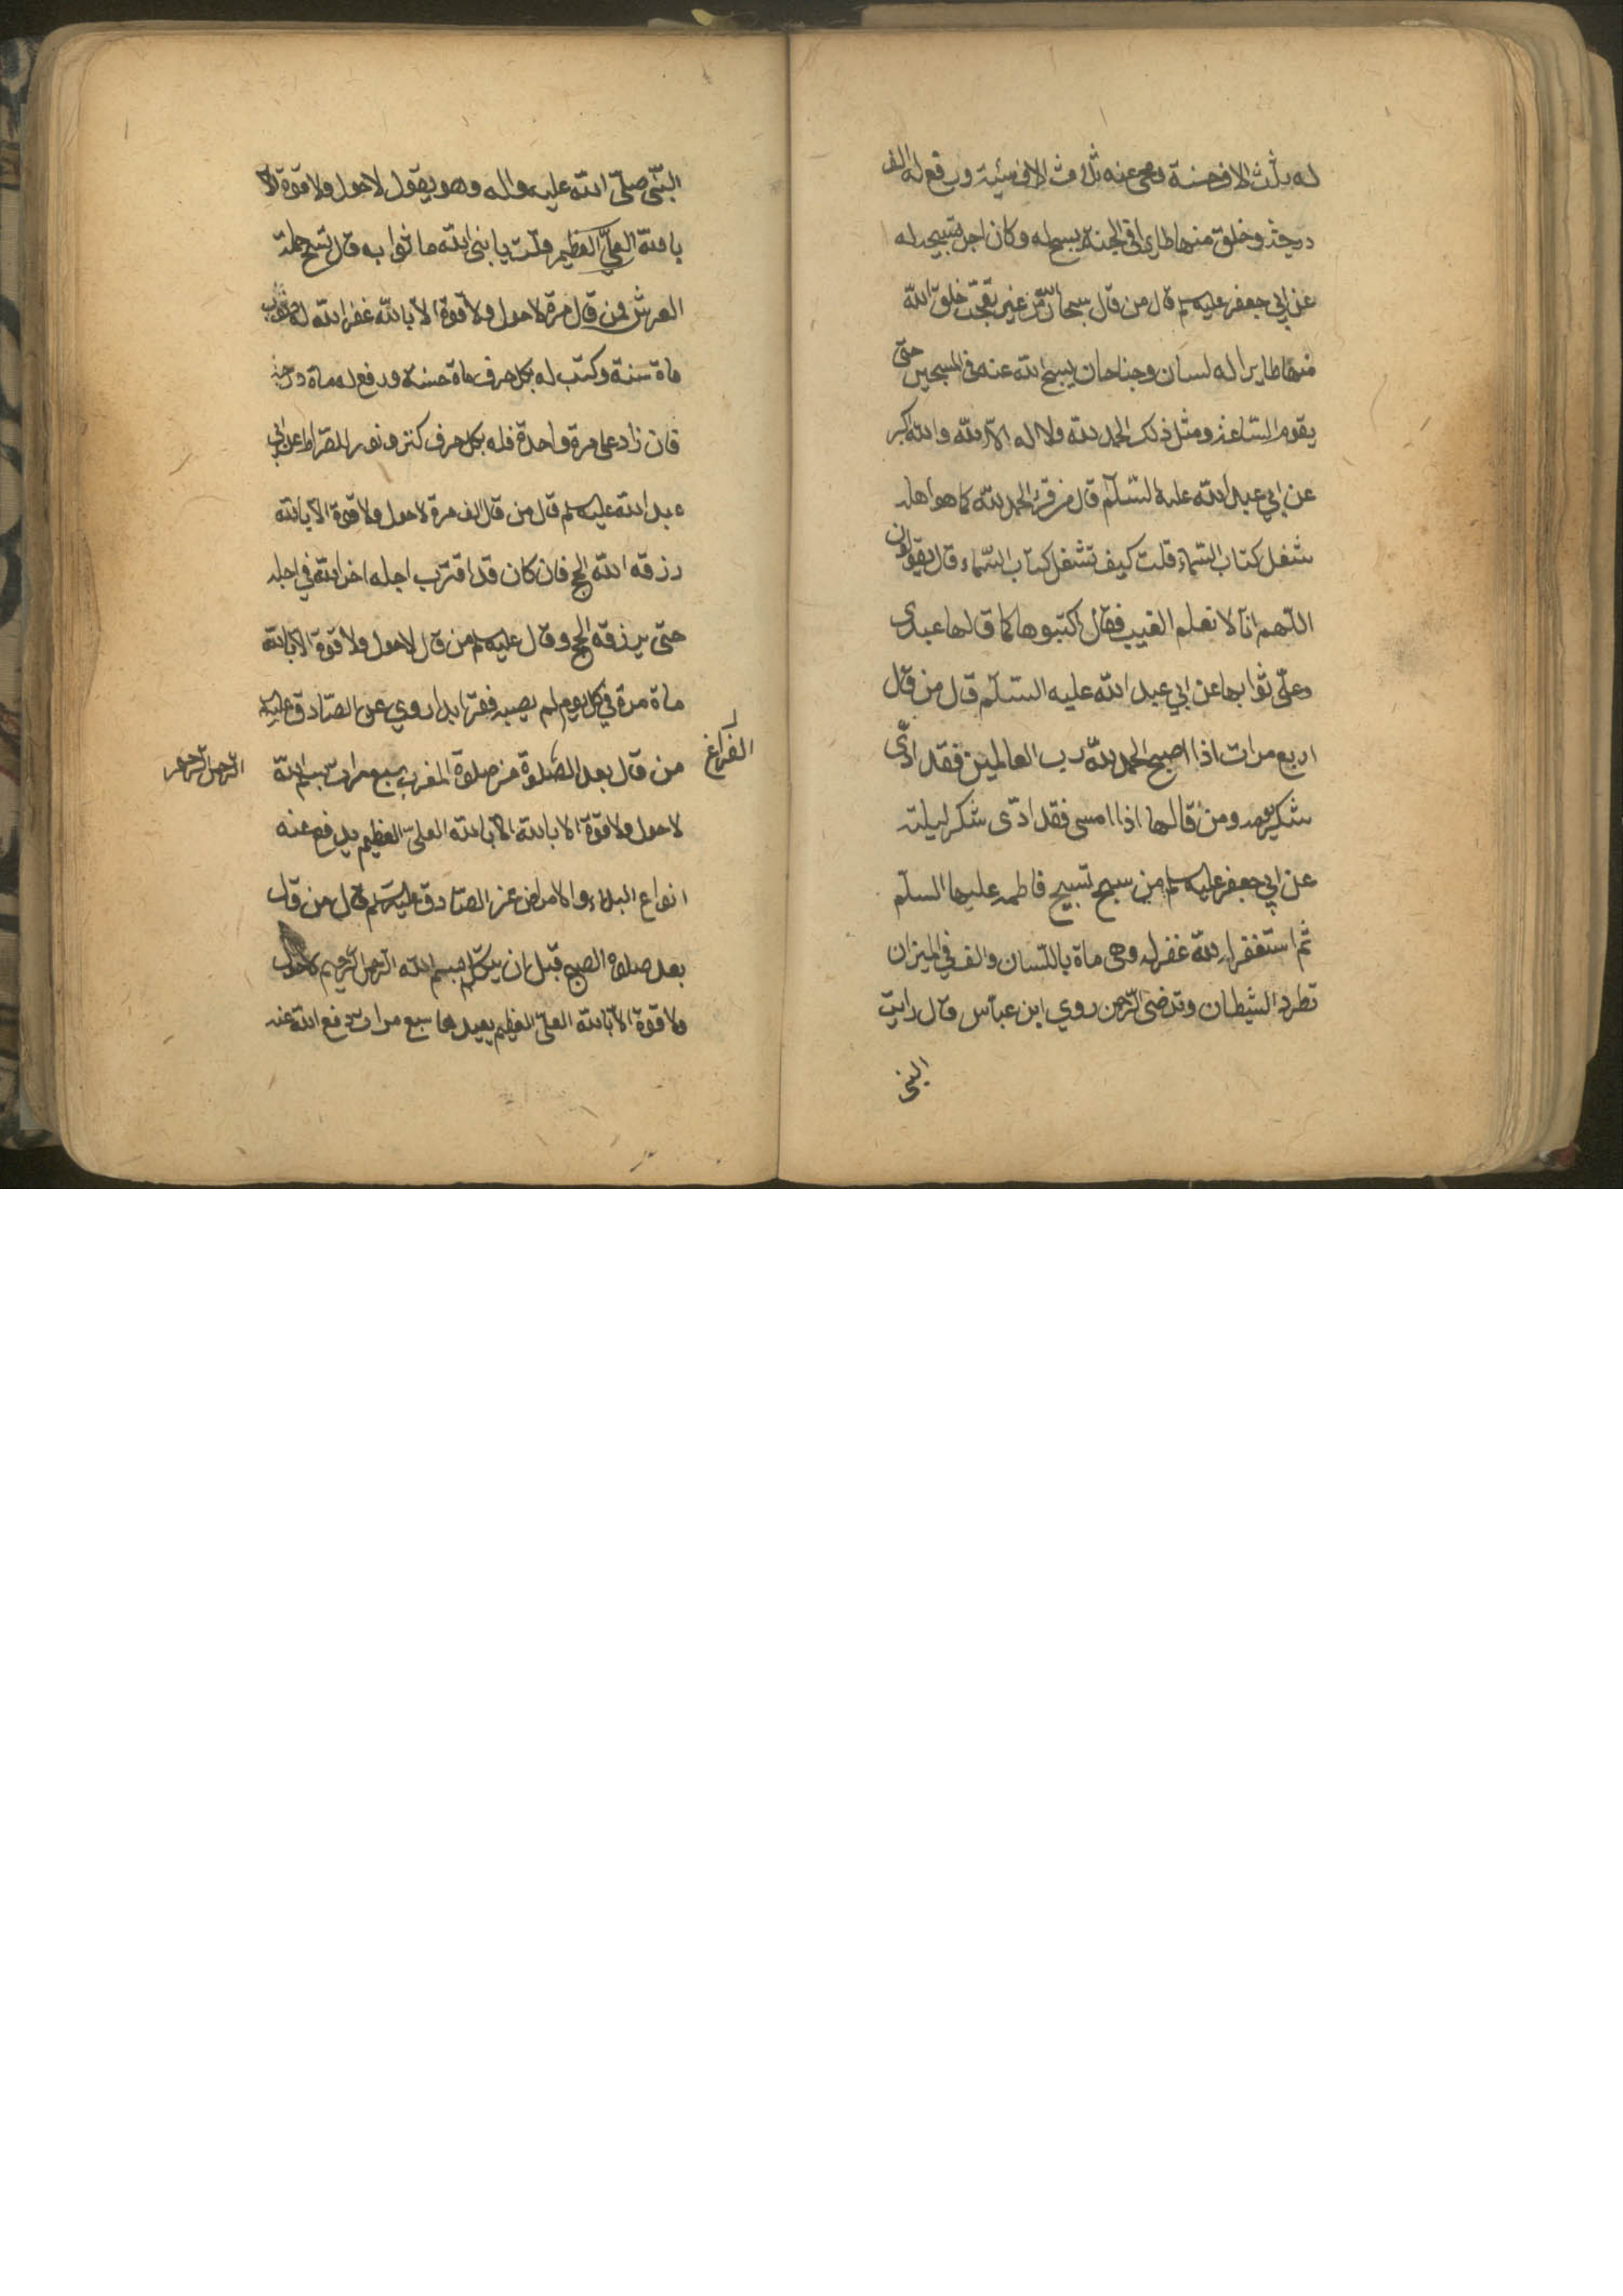 له بثلث الاف حسنة ومحى عنه ثلاث الاف سيئة ورفع له الف
درجة وخلق منها طايرا فى الجنة يسبح له وكان اجر تسبيحه له
عن ابي جعفر عليه سلم قال من قال سبحان الله من غير تعجب خلق الله
منها طايرا له لسان وجناحان يسبح الله عنه فى المسبحين حتى
يقوم الساعة ومثل ذلك الحمد لله ولا اله الا الله والله اكبر
عن ابي عبد الله عليه السلم قال من قرء الحمد لله كما هو اهله
شغل كتاب السماء قلت كيف تشغل كتاب السماء قال يقولون
اللهم انا لا نعلم الغيب فقال اكتبوها كما قالها عبدى
وعلى ثوابها عن ابي عبد الله عليه السلم قال من قال
اربع مرات اذا اصبح الحمد لله رب العالمين فقد ادى
شكر يومه ومن قالها اذا امسى فقد ادى شكر ليلته
عن ابي جعفر عليه سلم من سبح تسبيح فاطمه عليها السلم
ثم استغفر الله غفر له وهى ماة باللسان والف في الميزان
تطرد الشيطان وترضى الرحمن روي ابن عباس قال رايت
النبى
النبى صلى الله عليه واله وهو يقول لا حول ولا قوة الا
بالله العلي العظيم قلت يا نبى الله ما ثوابه قال تسبيح حملة
العرش فمن قال مرة لا حول ولا قوة الا بالله غفر الله له ذنوب
ماة سنة وكتب له بكل حرف ماة حسنة ورفع له ماة درجة
فان زاد على مرة واحدة فله بكل حرف كنز ونور الصراط عن ابي
عبد الله عليه سلم قال من قال الف مرة لا حول ولا قوة الا بالله
رزقه الله الحج فان كان قد اقترب اجله اخر الله في اجله
حتى يرزقه الحج وقال عليه سلم من قال لا حول ولا قوة الا بالله
ماة مرة في كل يوم لم يصبه فقر ابدا روي عن الصادق عليه
الفراغ
من قال بعد الصلوة من صلوة المغرب سبع مرات بسم الله
الرحمن الرحيم
لا حول ولا قوة الا بالله الا بالله العلى العظيم يدفع عنه
انواع البلاء والامراض عن الصادق عليه سلم قال من قال
بعد صلوة الصبح قبل ان يتكلم بسم الله الرحمن الرحيم لا حول
ولا قوة الا بالله العلى العظيم يعيدها سبع مرات دفع الله عنه